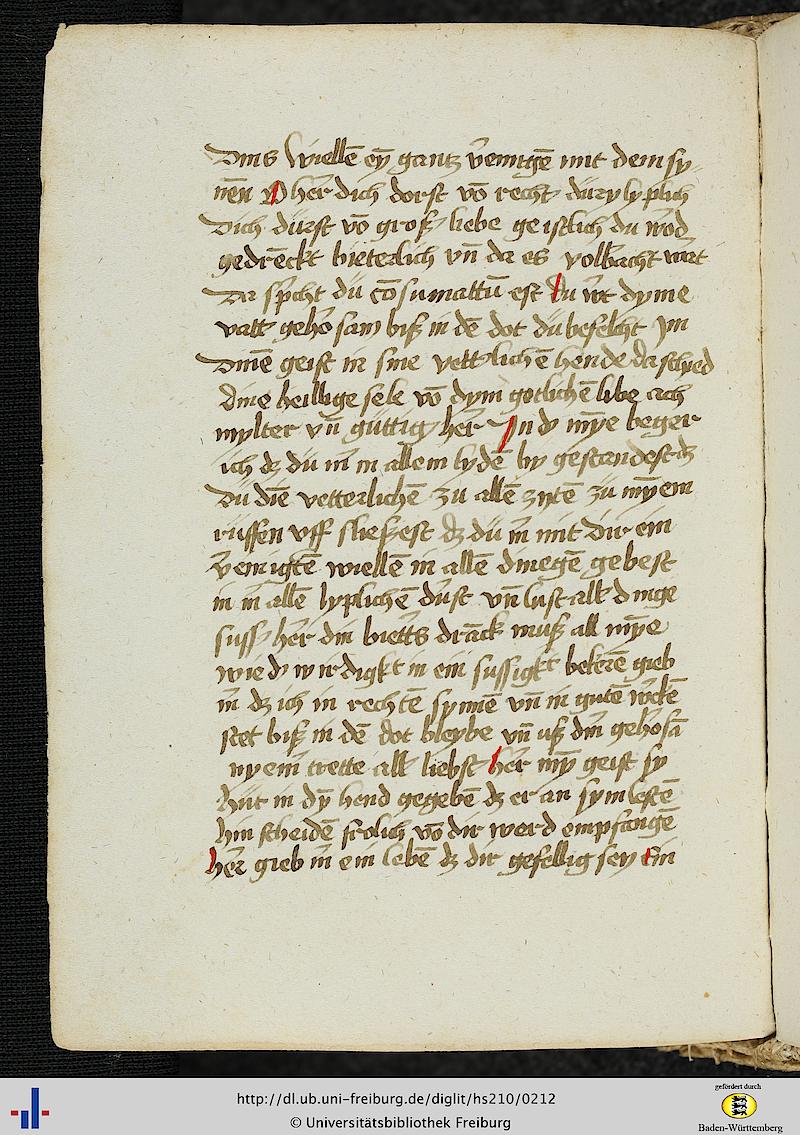 Dins wiellē eȳ gantz v̄eīnigē mit dem sy-
nen O her dich dorst vō recht dürÿ lyplich
Dich dürst vō groß liebe geistlich du w̄od
gedrēckt bieterlich vn̄ da es volbracht wart
Da sp̄cht dü cō sumattū est du w̄t dyme
vatt gehosam biß in dē dot dü befelcht ym
Dinē geist in sine vettlichē hende da schied
Dine heillige sele vō dym gotlichē libe ach
mylter vn̄ güttig her In dy mȳe beger
ich dz dü m̄ in allem lydē by gestandest dz
Dü diē vetterlichē zu allē zytē zü mȳem
rüffen vff sließest dz dü m̄ mit dir ein
v̄einigtē wiellē in allē dinegē gebest
m̄ in allē lyplichē dürst vn̄ lust all dinge
suss her din bietts drāck muß all mȳe
wiedywirdigkt in ein sussigkt bekerē gieb
m̄ dz ich in rechtē synnē vn̄ in gutē w̄ckē
stet biß in dē dot bleybe vn̄ uß din̄ gehosā
nyem trette all liebst her mȳ geist sy
hüt in dȳ hend gegebē dz er an sym lestē
hin scheidē frolich vō dir werd empfangē
her gieb m̄ ein lebē dz dir gefellig sey ein
http://dl.ub.uni-freiburg.de/diglit/hs210/0212
© Universitätsbibliothek Freiburg
gefördert durch
Baden-Württemberg